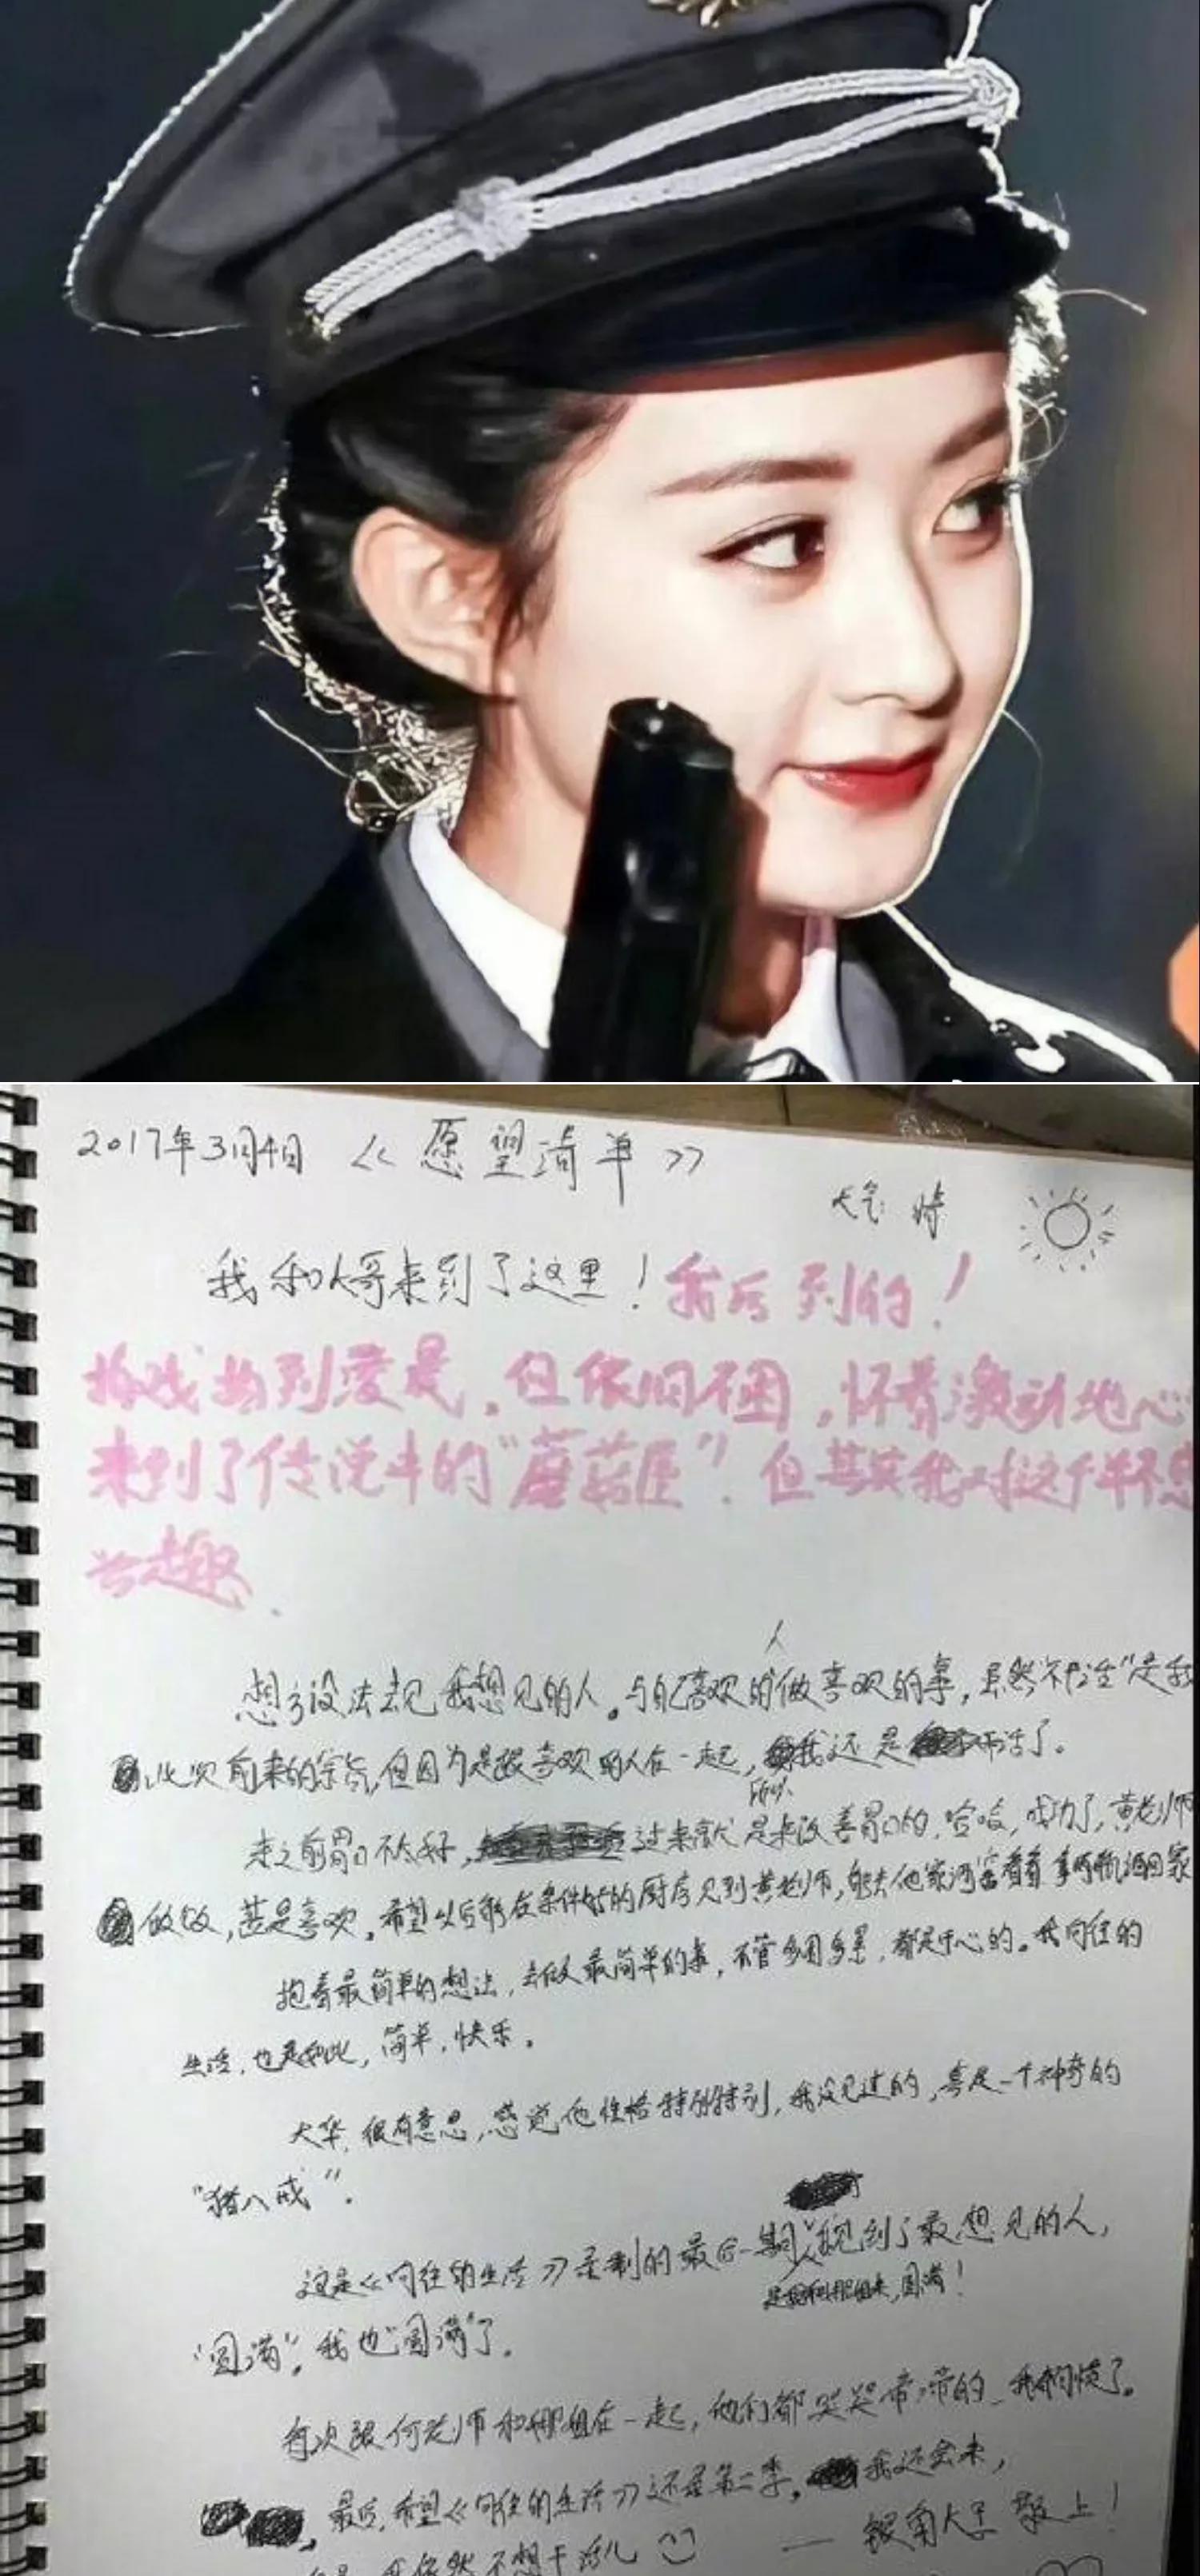 2017年3月4日 《愿望清单》
天气 晴
我和大哥来到了这里! 我后到的!
拍戏拍到凌晨,但依旧不困,怀着激动地心
来到了传说中的"蘑菇屋".但其实我对这个并不感
兴趣.
人
想方设法去见我想见的人。与自己喜欢的做喜欢的事,虽然"不干活"是我
此次前来的宗旨,但因为是跟喜欢的人在一起,我还是干活了。
所以
来之前胃口不太好,过来就是来改善胃口的.哈哈,成功了,黄老师
做饭,甚是喜欢.希望以后能在条件好的厨房见到黄老师,能去他家酒窖看看拿两瓶酒回家
抱着最简单的想法,去做最简单的事,不管多困多累,都是开心的。我向往的
生活,也是如此,简单,快乐。
大华,很有意思,感觉他性格特别特别,我没见过的,真是一个神奇的
"猪八戒".
这是《向往的生活》录制的最后一期,我见到了最想见的人,
圆满!
"圆满",我也"圆满"了.
每次跟何老师和娜姐在一起,他们都哭哭啼啼的
最后,希望《向往的生活》还是第二季,我还会来,
依然不想干活儿
—— 银角大王 敬上!